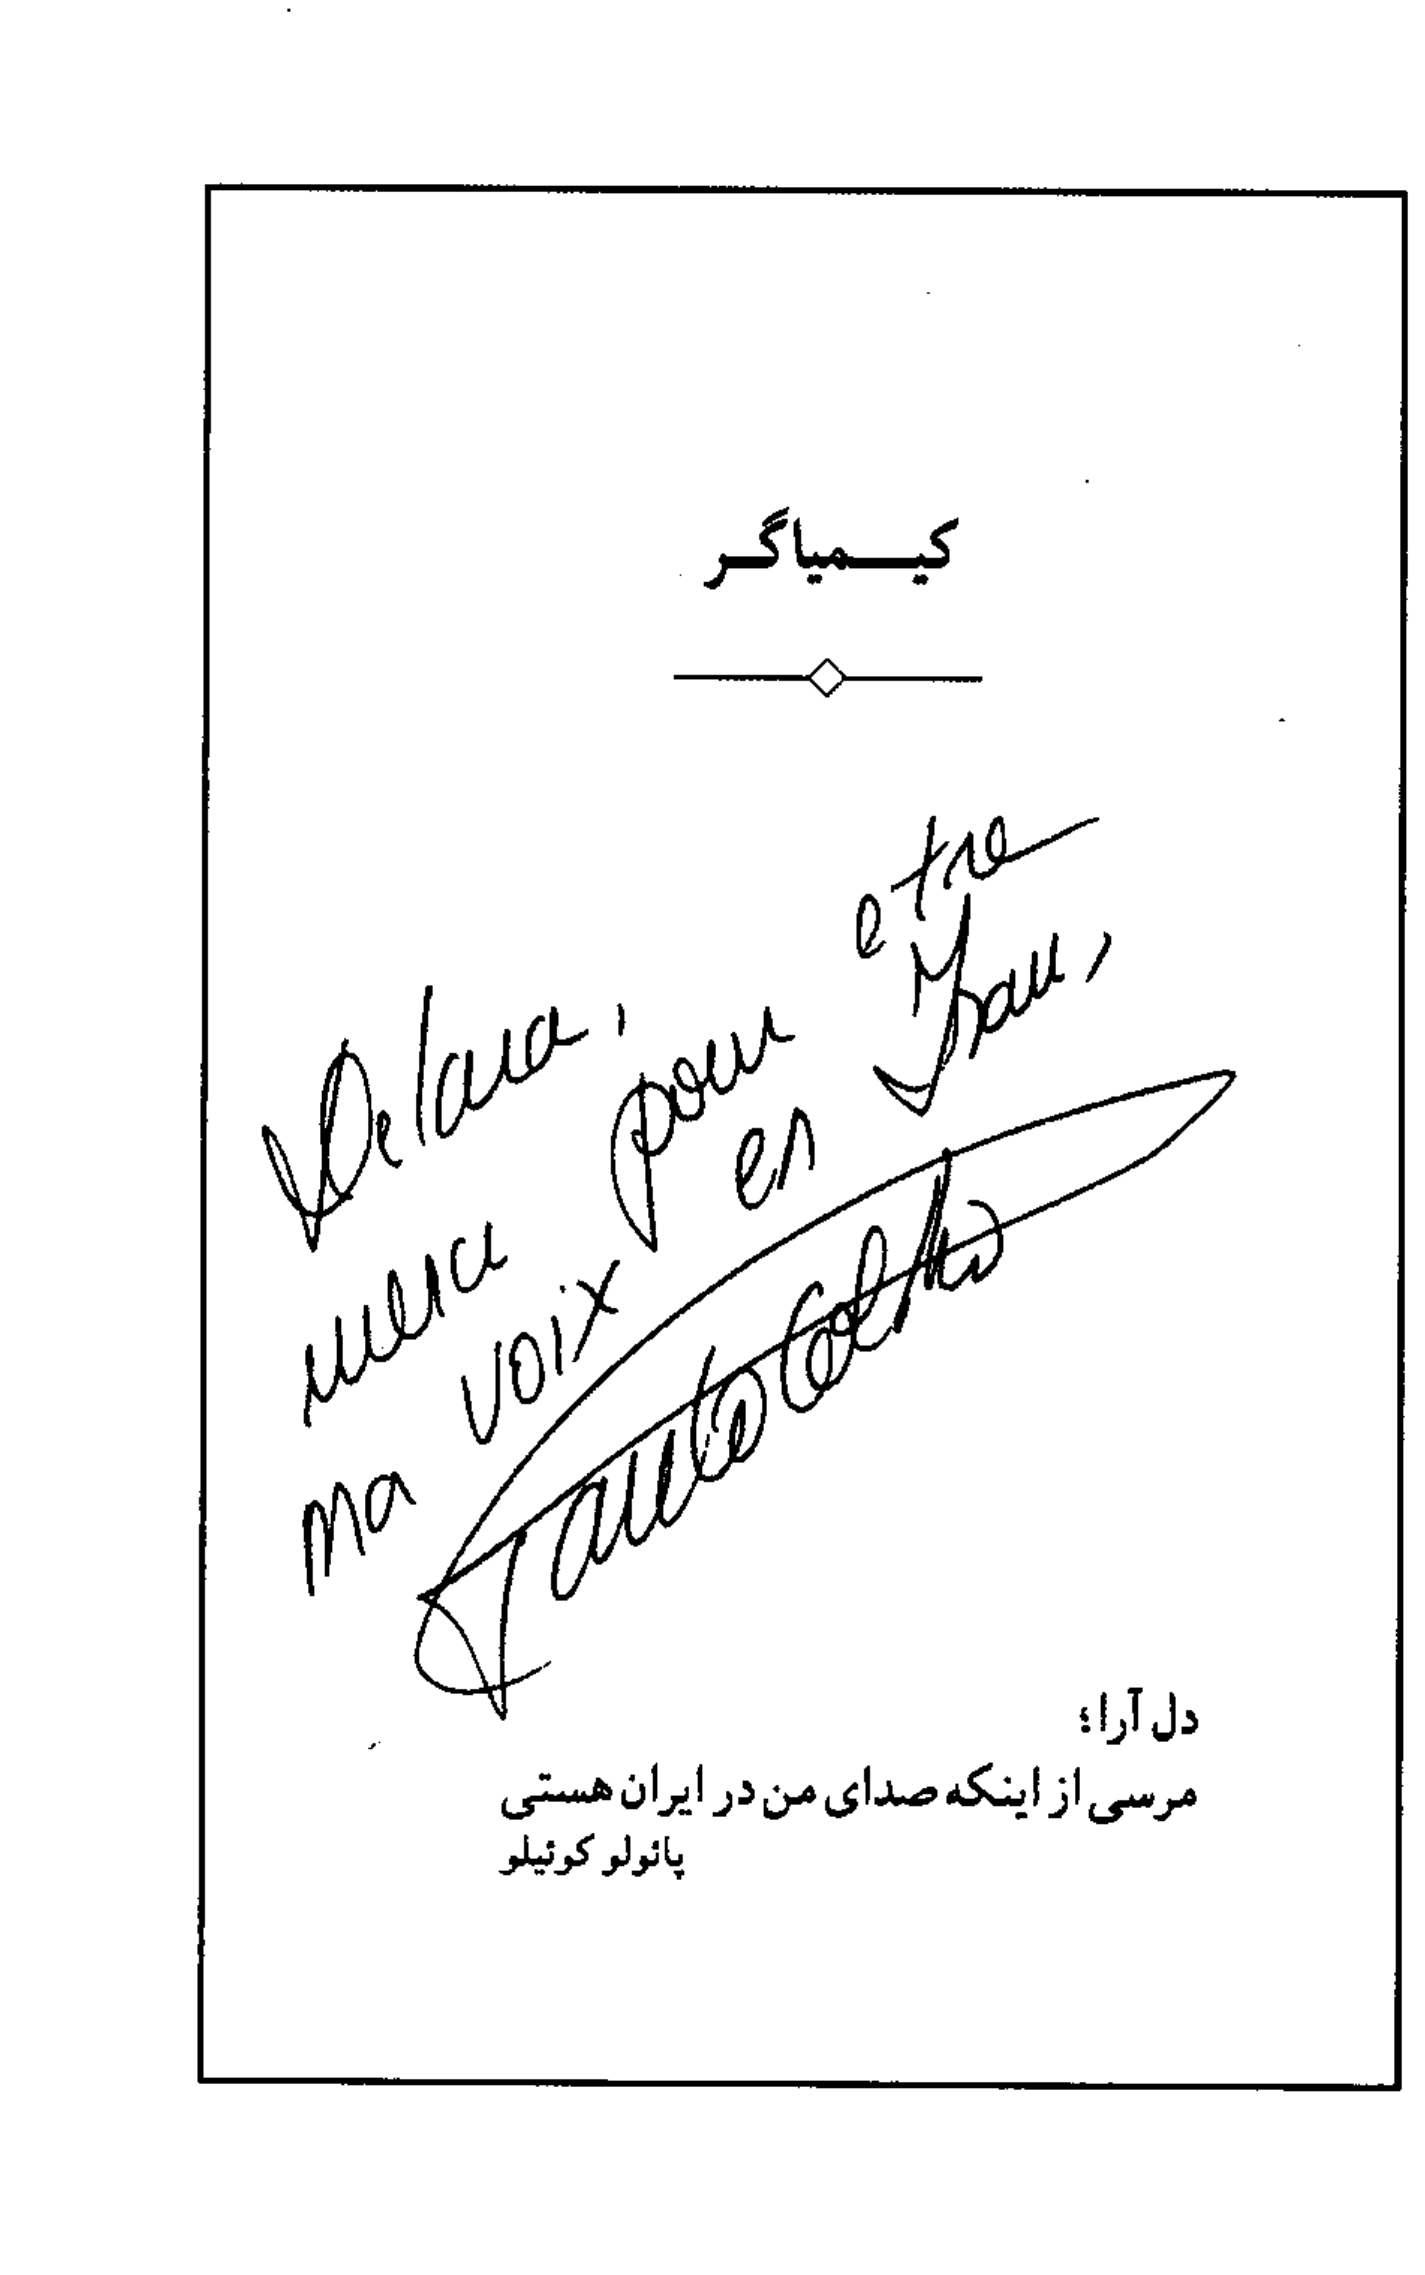 کیمیاگر
Delara,
merci pour etre
ma voix en Iran,
Paulo Coelho
دل آرا؛
مرسی از اینکه صدای من در ایران هستی
پائولو کوئیلو